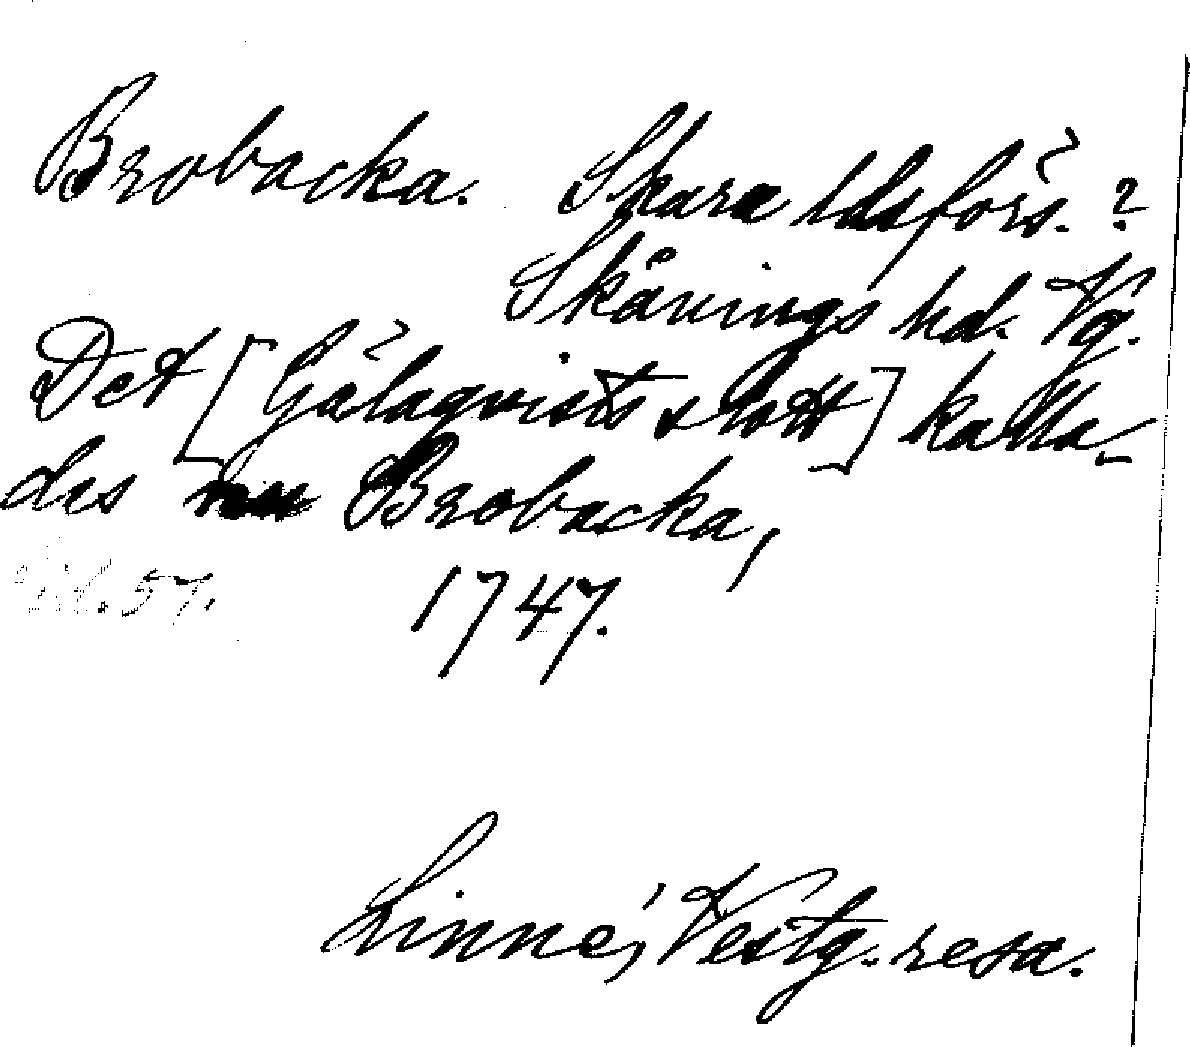 Brobacka. Skara ldsförs. ?
Skånings hd. Vg.
Det [Gälaqvists slott] kalla-
des nu Brobacka,
1747.
Linné, Vestg. resa.